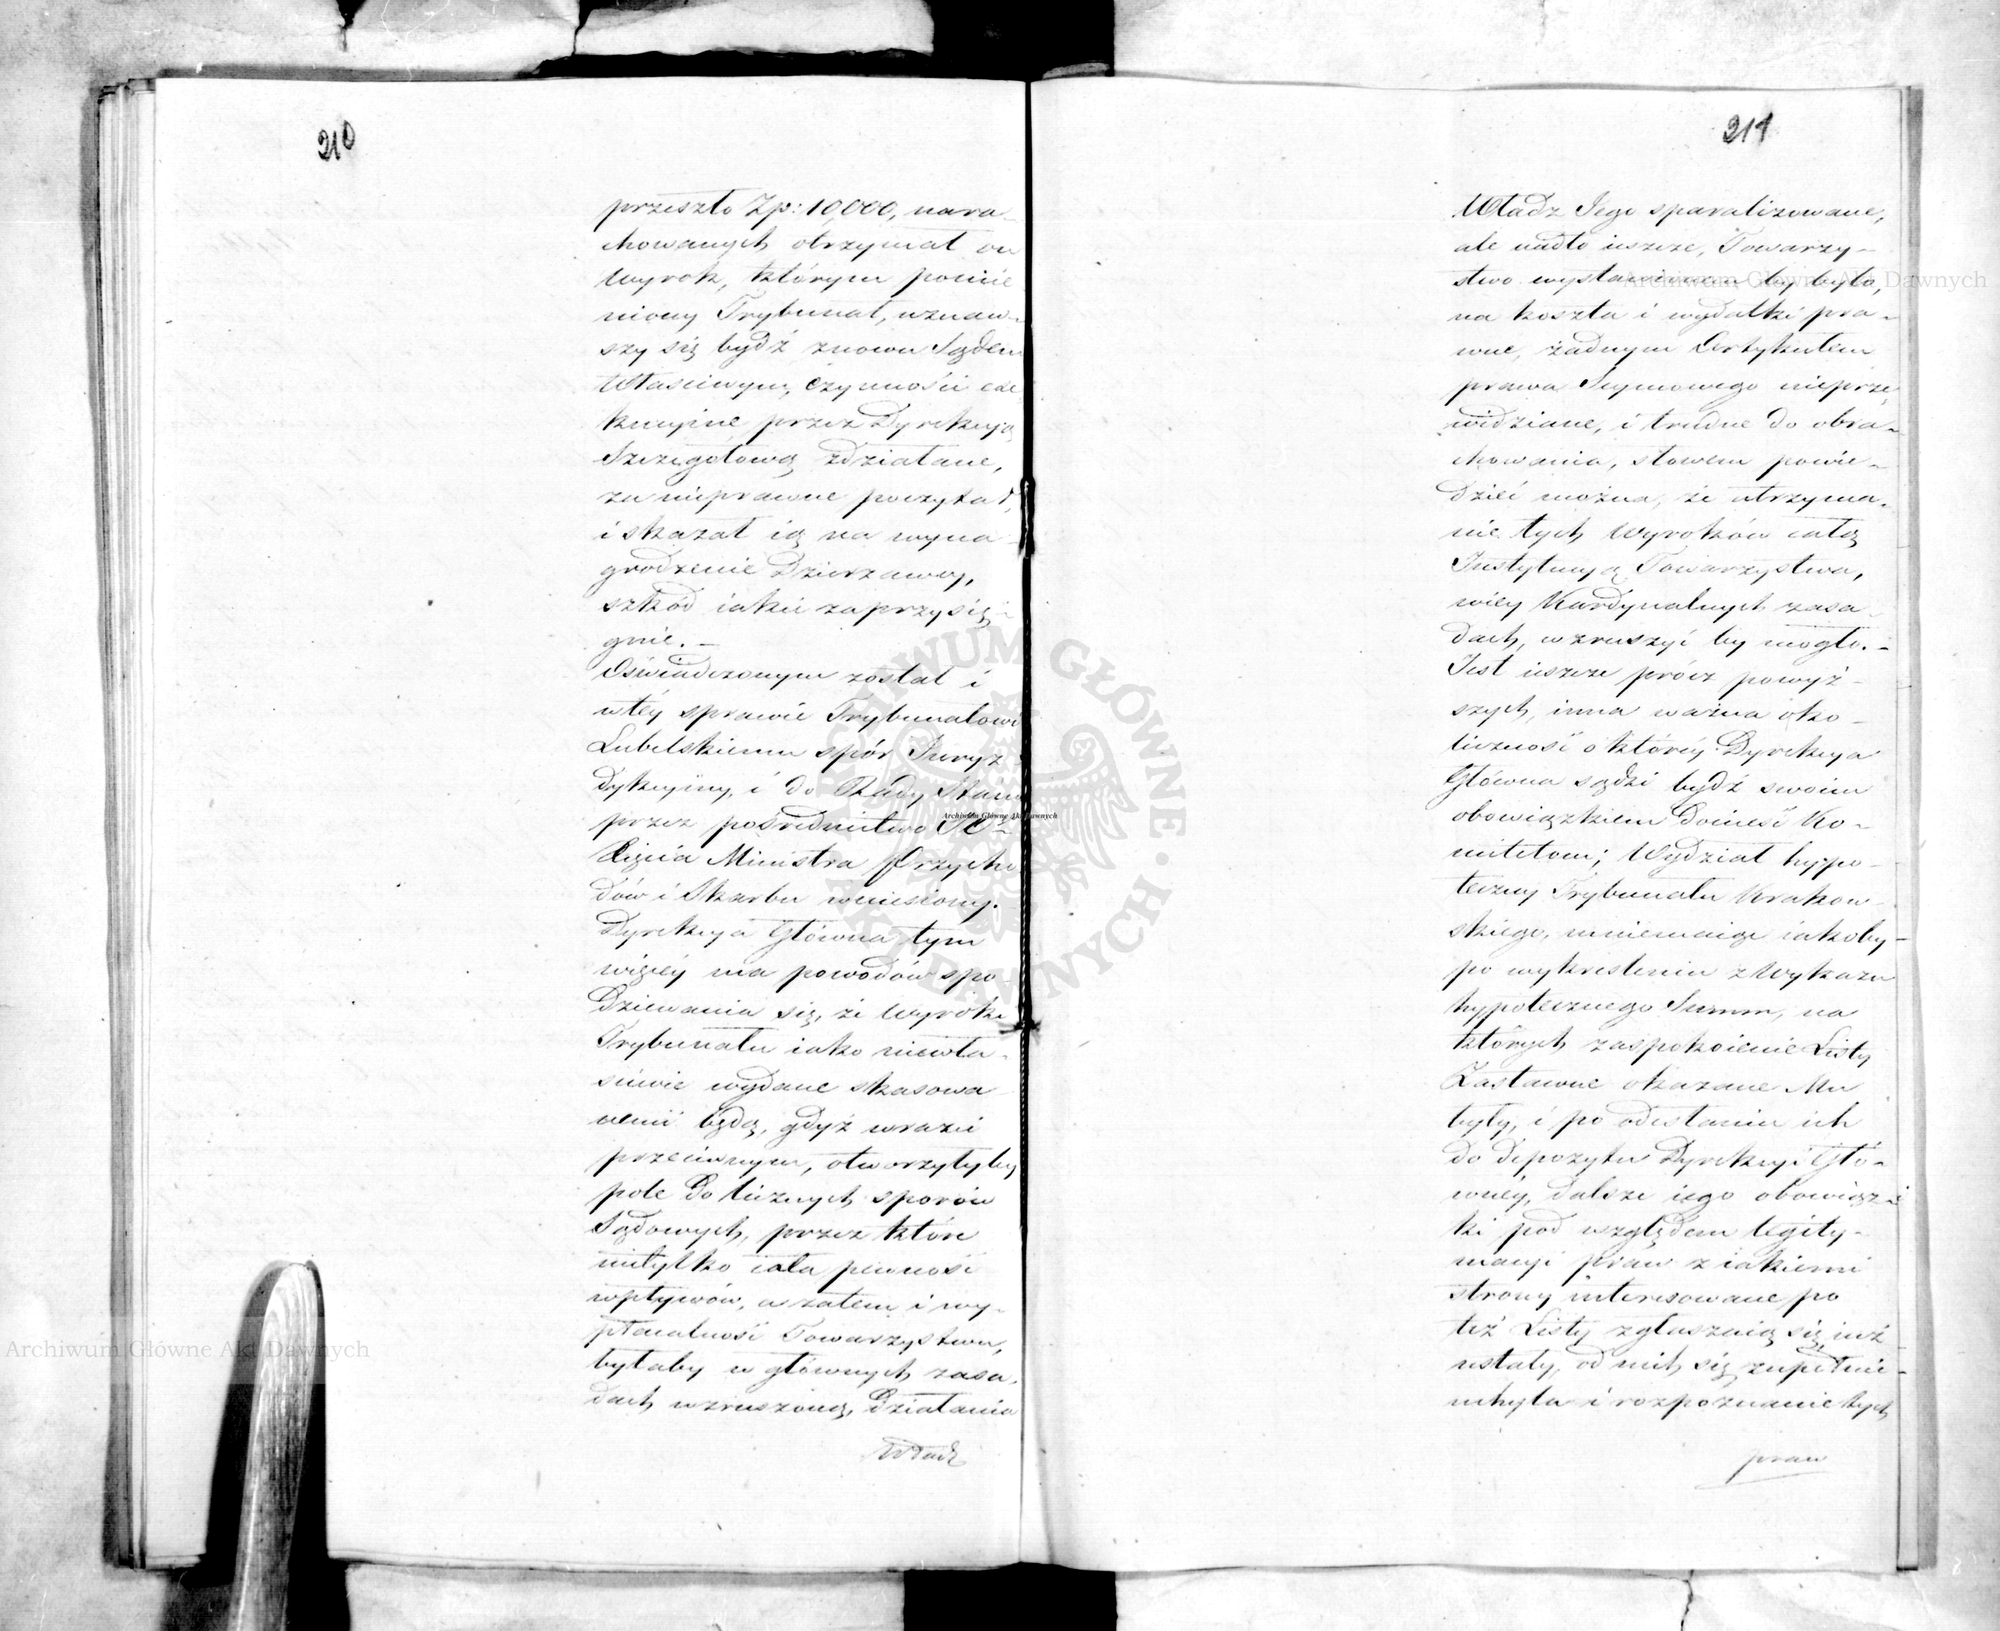 210
przeszło Zp: 10,000, nara-
chowanych otrzymał on
Wyrok, którym pomie
niony Trybunał, uznaw-
szy się bydź znowu Sądem
Właściwym, czynności exe
kucyine przez Dyrekcyą
Szczegołową zdziałane,
za nieprawne poczytał,
i skazał ią na wyna
grodzenie Dzierzawcy,
szkód iakie zaprzysię-
gnie. —
Oświadczonym został i
w téy sprawie Trybunałowi
Lubelskiemu spór Juryz
dykcyiny, i do Rady Stanu
przez pośrednictwo JO
Xięcia Ministra Przycho
dów i Skarbu wniesiony.
Dyrekcya Główna tym
więcéy ma powodów spo
dziewania się, że Wyroki
Trybunału iako niewła-
ściwie wydane skasowa
nemi będą, gdyż w razie
przeciwnym, otworzyłyby
pole do licznych sporów
Sądowych, przez które
nietylko cała pewność
wpływów, a zatem i wy-
płacalność Towarzystwa,
byłaby w głównych zasa-
dach wzruszoną, Działania
Władz
211
Władz Jego sparalizowane,
ale nadto ieszcze, Towarzy-
stwo wystawionem by było,
na koszta i wydatki pra-
wne, żadnym Artykułem
prawa Seymowego nieprze
widziane, i trudne do obra-
chowania, słowem powie-
dzieć można, że utrzyma-
nie tych Wyroków całą
Instytucyą Towarzystwa,
w iéy Kardynalnych zasa
dach, wzruszyć by mogło. —
Jest ieszcze prócz powyż-
szych, inna ważna oko-
liczność o któréy Dyrekcya
Główna sądzi bydź swoim
obowiązkiem donieść Ko-
mitetowi; Wydział hypo-
teczny Trybunału Krakow-
skiego, mniemaiąc iakoby-
po wykreśleniu z Wykazu
hypotecznego Summ, na
których zaspokoienie Listy
Zastawne okazane Mu
były, i po odesłaniu ich
do depozytu Dyrekcyi Głó-
wnéy, dalsze iego obowiąz-
ki pod względem legity-
macyi praw z iakiemi
strony interesowane po
też Listy zgłaszaią się, iuż
ustały, od nich się zupełnie
uchyla i rozpoznanie tych
praw
Archiwum Główne Akt Dawnych
Archiwum Główne Akt Dawnych
Archiwum Główne Akt Dawnych
ARCHIWUM GŁÓWNE AKT DAWNYCH